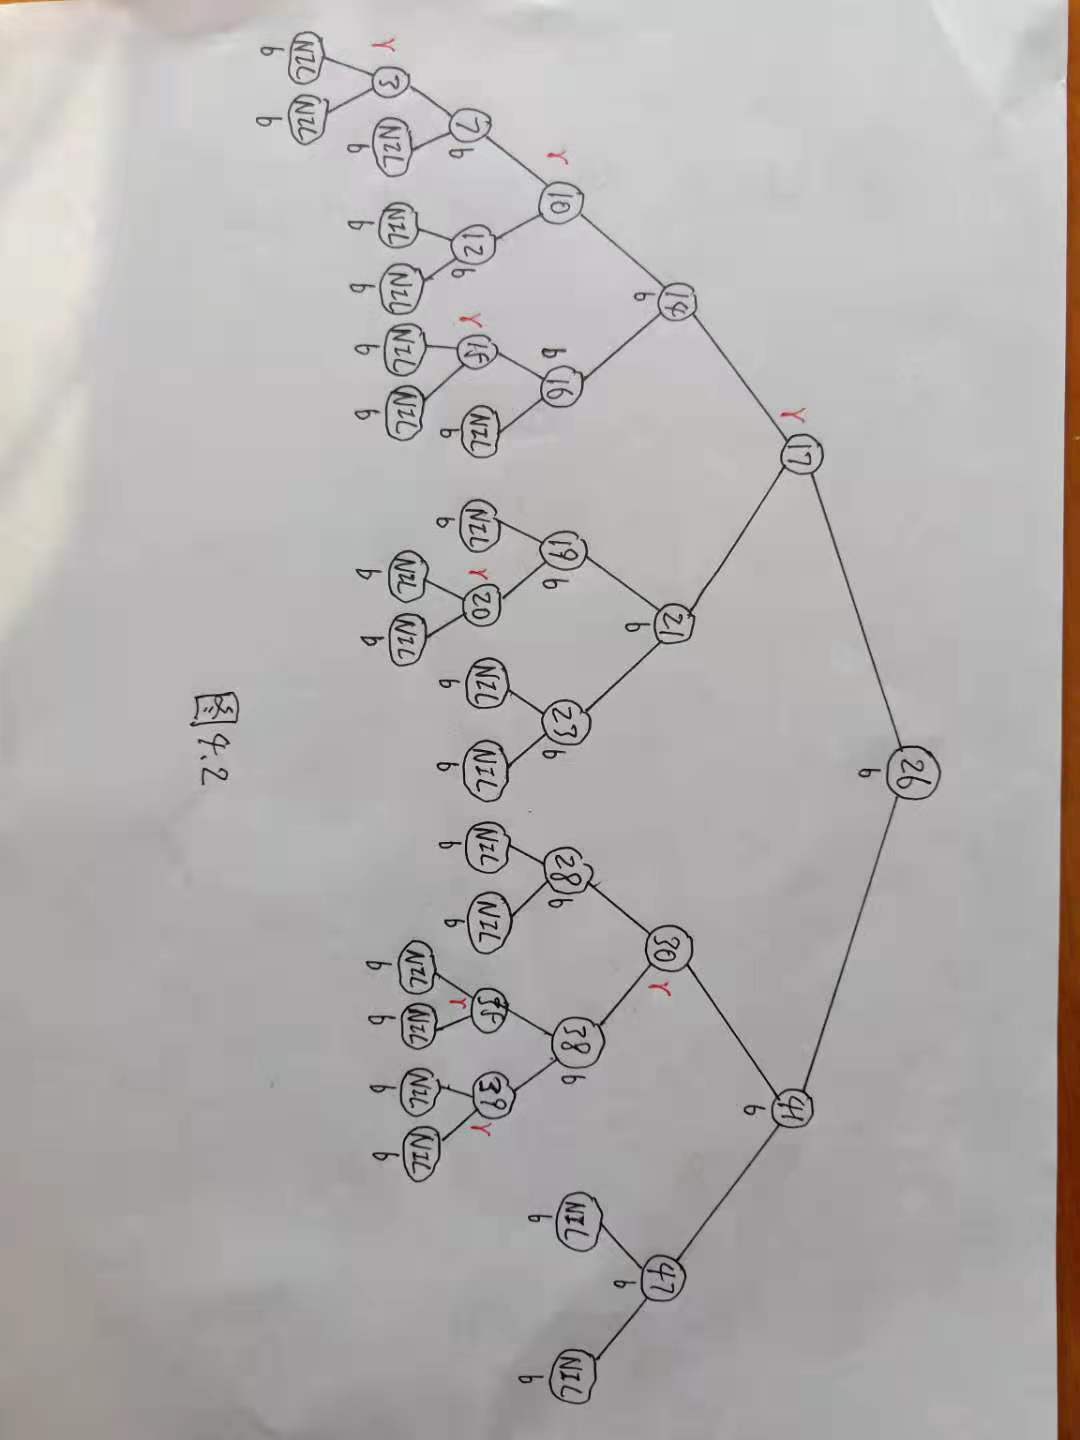 26
b
r 17
41
b
14
b
21
b
30 r
47
b
r 10
b 16
19 b
23 b
28 b
38 b
NIL
b
NIL
b
7 b
12 b
r 15
NIL
b
NIL
b
r 20
NIL
b
NIL
b
NIL
b
NIL
b
35
r
39 r
r 3
NIL
b
NIL
b
NIL
b
NIL
b
NIL
b
NIL
b
NIL
b
NIL
b
NIL
b
NIL
b
NIL
b
NIL
b
NIL
b
图4.2